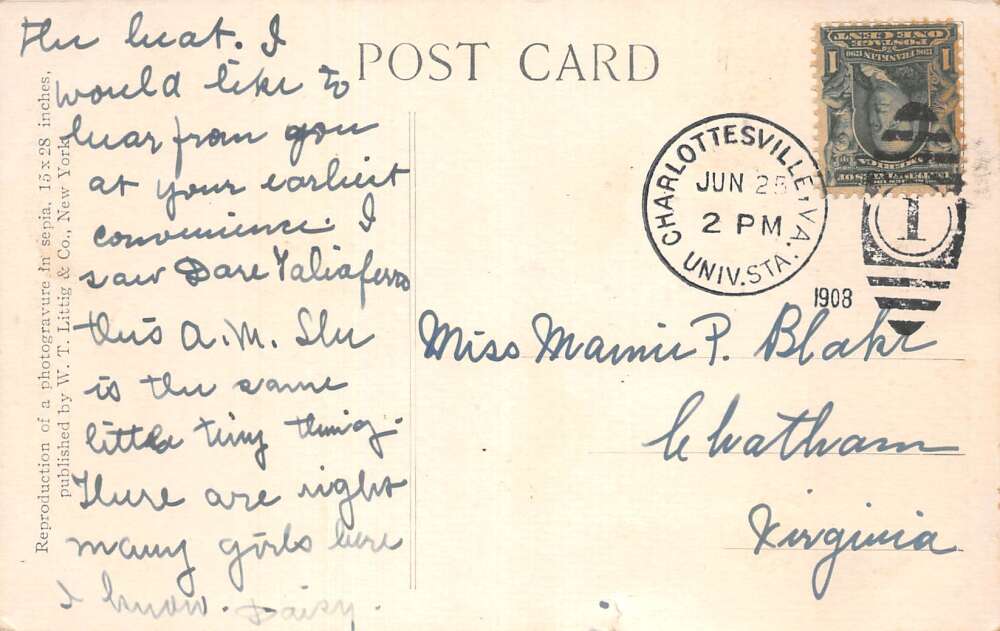 the heat. I
would like to
hear from you
at your earliest
convenience. I
saw Dare Taliaferro
this A.M. She
is the same
little tiny thing.
There are right
many girls here
I know. Daisy.
Reproduction of a photogravure in sepia, 15 x 28 inches,
published by W. T. Littig & Co., New York
POST CARD
ONE CENT
POSTAGE
1 1
FRANKLIN
CHARLOTTESVILLE, VA.
JUN 25
2 PM
UNIV. STA.
1908
1
Miss Mamie P. Blake
Chatham
Virginia